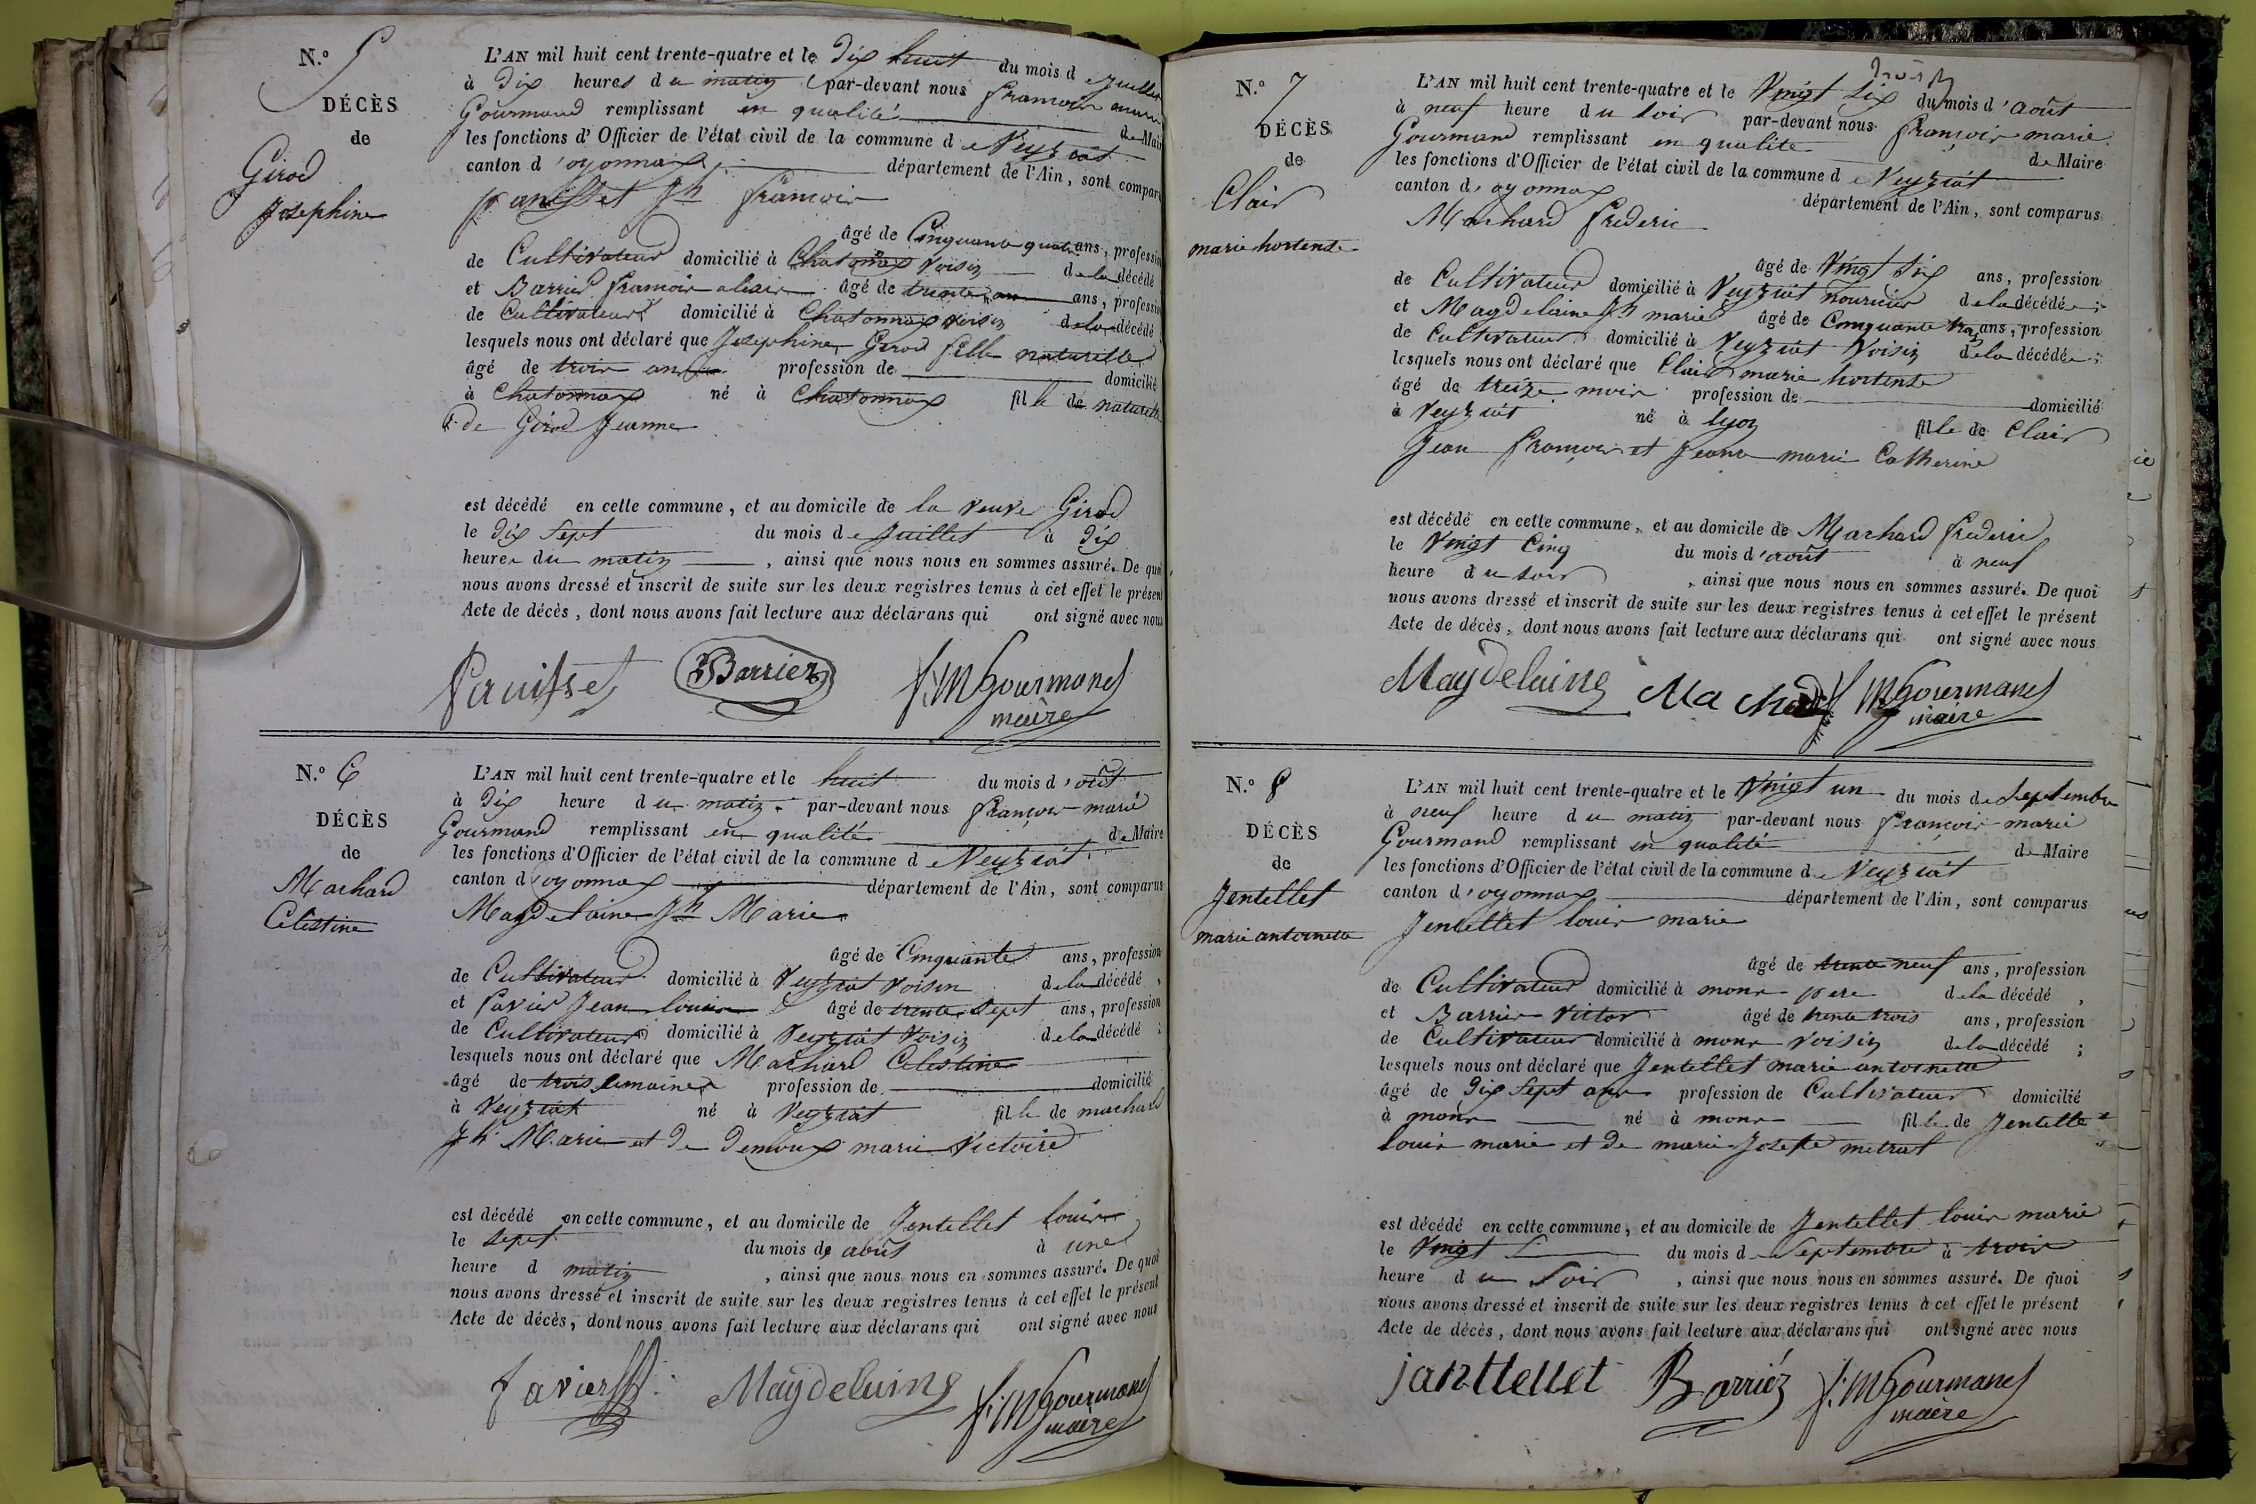 N.o 5
DÉCÈS
de
Girod
Josephine
L'AN mil huit cent trente-quatre et le dix huit du mois d e Juillet
à dix heures d u matin par-devant nous françois marie
Gourmand remplissant en qualité de Maire
les fonctions d'Officier de l'état civil de la commune d e Veyziat
canton d 'oyonnax département de l'Ain, sont comparus
panisset Jh françois
âgé de Cinquante quatre ans, profession
de Cultivateur domicilié à Chatonnax voisin de la décédé
et Barrier françois âgé de trente ans, profession
de Cultivateur domicilié à Chatonnax voisin de la décédé
lesquels nous ont déclaré que Josephine Girod fille naturelle
âgé de trois ans profession de domicilié
à Chatonnax né à Chatonnax fille de naturelle
de Girod Jeanne
est décédé en cette commune, et au domicile de la veuve Girod
le dix sept du mois d e Juillet à dix
heure du matin, ainsi que nous nous en sommes assuré. De quoi
nous avons dressé et inscrit de suite sur les deux registres tenus à cet effet le présent
Acte de décès, dont nous avons fait lecture aux déclarans qui ont signé avec nous
Panisset Barrier f: M Gourmand
maire
N.o 6
DÉCÈS
de
Machard
Celestine
L'AN mil huit cent trente-quatre et le huit du mois d 'oût
à dix heure d u matin par-devant nous françois marie
Gourmand remplissant en qualité de Maire
les fonctions d'Officier de l'état civil de la commune d e Veyziat
canton d 'oyonnax département de l'Ain, sont comparus
Magdelaine Jh Marie
âgé de Cinquante ans, profession
de Cultivateur domicilié à Veyziat voisin de la décédé,
et favier Jean louis âgé de trente sept ans, profession
de Cultivateur domicilié à Veyziat Voisin de la décédé;
lesquels nous ont déclaré que Machard Celestine
âgé de trois semaines profession de domicilié
à Veyziat né à Veyziat fille de machard
Jh Marie et de demoux marie Victoire
est décédé en cette commune, et au domicile de Jentellet louis
le sept du mois de août à une
heure d matin, ainsi que nous nous en sommes assuré. De quoi
nous avons dressé et inscrit de suite sur les deux registres tenus à cet effet le présent
Acte de décès, dont nous avons fait lecture aux déclarans qui ont signé avec nous
favier Magdelaine f: M Gourmand
maire
N.o 7
DÉCÈS
de
Clair
marie hortense
L'AN mil huit cent trente-quatre et le Vingt six du mois d 'août
à neuf heure d u soir par-devant nous françois marie
Gourmand remplissant en qualité de Maire
les fonctions d'Officier de l'état civil de la commune d e Veyziat
canton d 'oyonnax département de l'Ain, sont comparus
Machard frederic
âgé de Vingt six ans, profession
de Cultivateur domicilié à Veyziat nourricier de la décédée;
et Magdelaine Jh marie âgé de Cinquante ans, profession
de Cultivateur domicilié à Veyziat Voisin de la décédée;
lesquels nous ont déclaré que Clair marie hortense
âgé de treize mois profession de domicilié
à Veyziat né à lyon fille de Clair
Jean françois et Jeanne marie Catherine
est décédé en cette commune, et au domicile de Machard frederic
le Vingt Cinq du mois d 'août à neuf
heure d u soir, ainsi que nous nous en sommes assuré. De quoi
nous avons dressé et inscrit de suite sur les deux registres tenus à cet effet le présent
Acte de décès, dont nous avons fait lecture aux déclarans qui ont signé avec nous
Magdelaine Machard f: M Gourmand
maire
N.o 8
DÉCÈS
de
Jentellet
marie antoinette
L'AN mil huit cent trente-quatre et le Vingt un du mois de Septembre
à neuf heure d u matin par-devant nous françois marie
Gourmand remplissant en qualité de Maire
les fonctions d'Officier de l'état civil de la commune d e Veyziat
canton d 'oyonnax département de l'Ain, sont comparus
Jentellet louis marie
âgé de trente neuf ans, profession
de Cultivateur domicilié à mons pere de la décédé,
et Barrier Victor âgé de trente trois ans, profession
de Cultivateur domicilié à mons voisin de la décédé;
lesquels nous ont déclaré que Jentellet marie antoinette
âgé de dix sept ans profession de Cultivateur domicilié
à mons né à mons fille de Jentellet
louis marie et de marie Josephe metrat
est décédé en cette commune, et au domicile de Jentellet louis marie
le Vingt du mois d e Septembre à trois
heure d u soir, ainsi que nous nous en sommes assuré. De quoi
nous avons dressé et inscrit de suite sur les deux registres tenus à cet effet le présent
Acte de décès, dont nous avons fait lecture aux déclarans qui ont signé avec nous
janttellet Barriér f: M Gourmand
maire